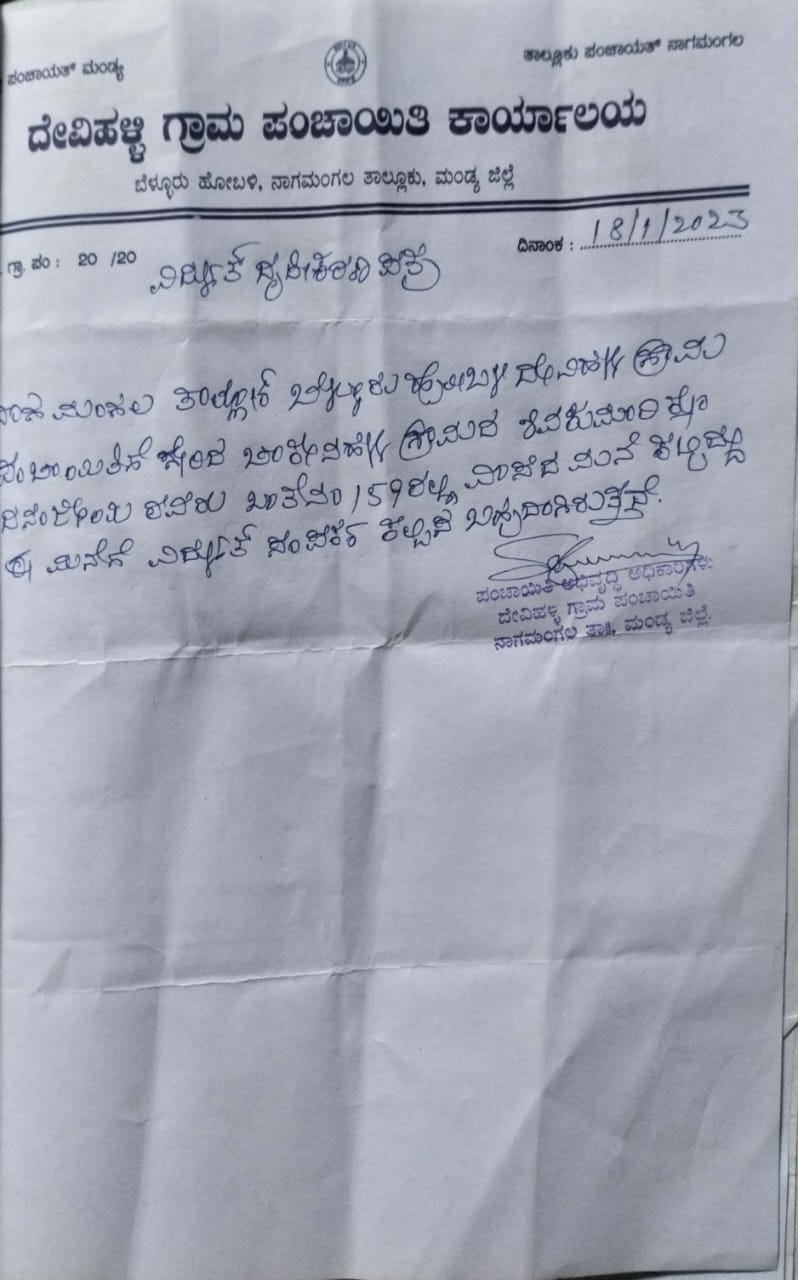 ಪಂಚಾಯತ್ ಮಂಡ್ಯ
ತಾಲ್ಲೂಕು ಪಂಚಾಯತ್ ನಾಗಮಂಗಲ
ದೇವಿಹಳ್ಳಿ ಗ್ರಾಮ ಪಂಚಾಯಿತಿ ಕಾರ್ಯಾಲಯ
ಬೆಳ್ಳೂರು ಹೋಬಳಿ, ನಾಗಮಂಗಲ ತಾಲ್ಲೂಕು, ಮಂಡ್ಯ ಜಿಲ್ಲೆ
ಗ್ರಾ. ಪಂ : 20 /20
ದಿನಾಂಕ : 18/1/2023
ವಿದ್ಯುತ್ ದೃಢೀಕರಣ ಪತ್ರ
ಮಂಗಲ ತಾಲ್ಲೂಕ್ ಬೆಳ್ಳೂರು ಹೋಬಳಿ ದೇವಿಹಳ್ಳಿ ಗ್ರಾಮ
ಪಂಚಾಯಿತಿಗೆ ಸೇರಿದ ಗ್ರಾಮದ ಶಿವಕುಮಾರಿ ಕೋಂ
ರವರು ಖಾತೆನಂ 159 ರಲ್ಲಿ ವಾಸದ ಮನೆ ಕಟ್ಟಿದ್ದು
ಈ ಮನೆಗೆ ವಿದ್ಯುತ್ ಸಂಪರ್ಕ ಕಲ್ಪಿಸ ಬಹುದಾಗಿರುತ್ತದೆ.
ಪಂಚಾಯಿತಿ ಅಭಿವೃದ್ಧಿ ಅಧಿಕಾರಿಗಳು
ದೇವಿಹಳ್ಳಿ ಗ್ರಾಮ ಪಂಚಾಯಿತಿ
ನಾಗಮಂಗಲ ತಾ॥, ಮಂಡ್ಯ ಜಿಲ್ಲೆ.